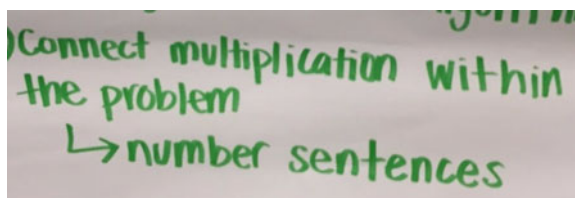 )Connect multiplication within
the problem
↳number sentences